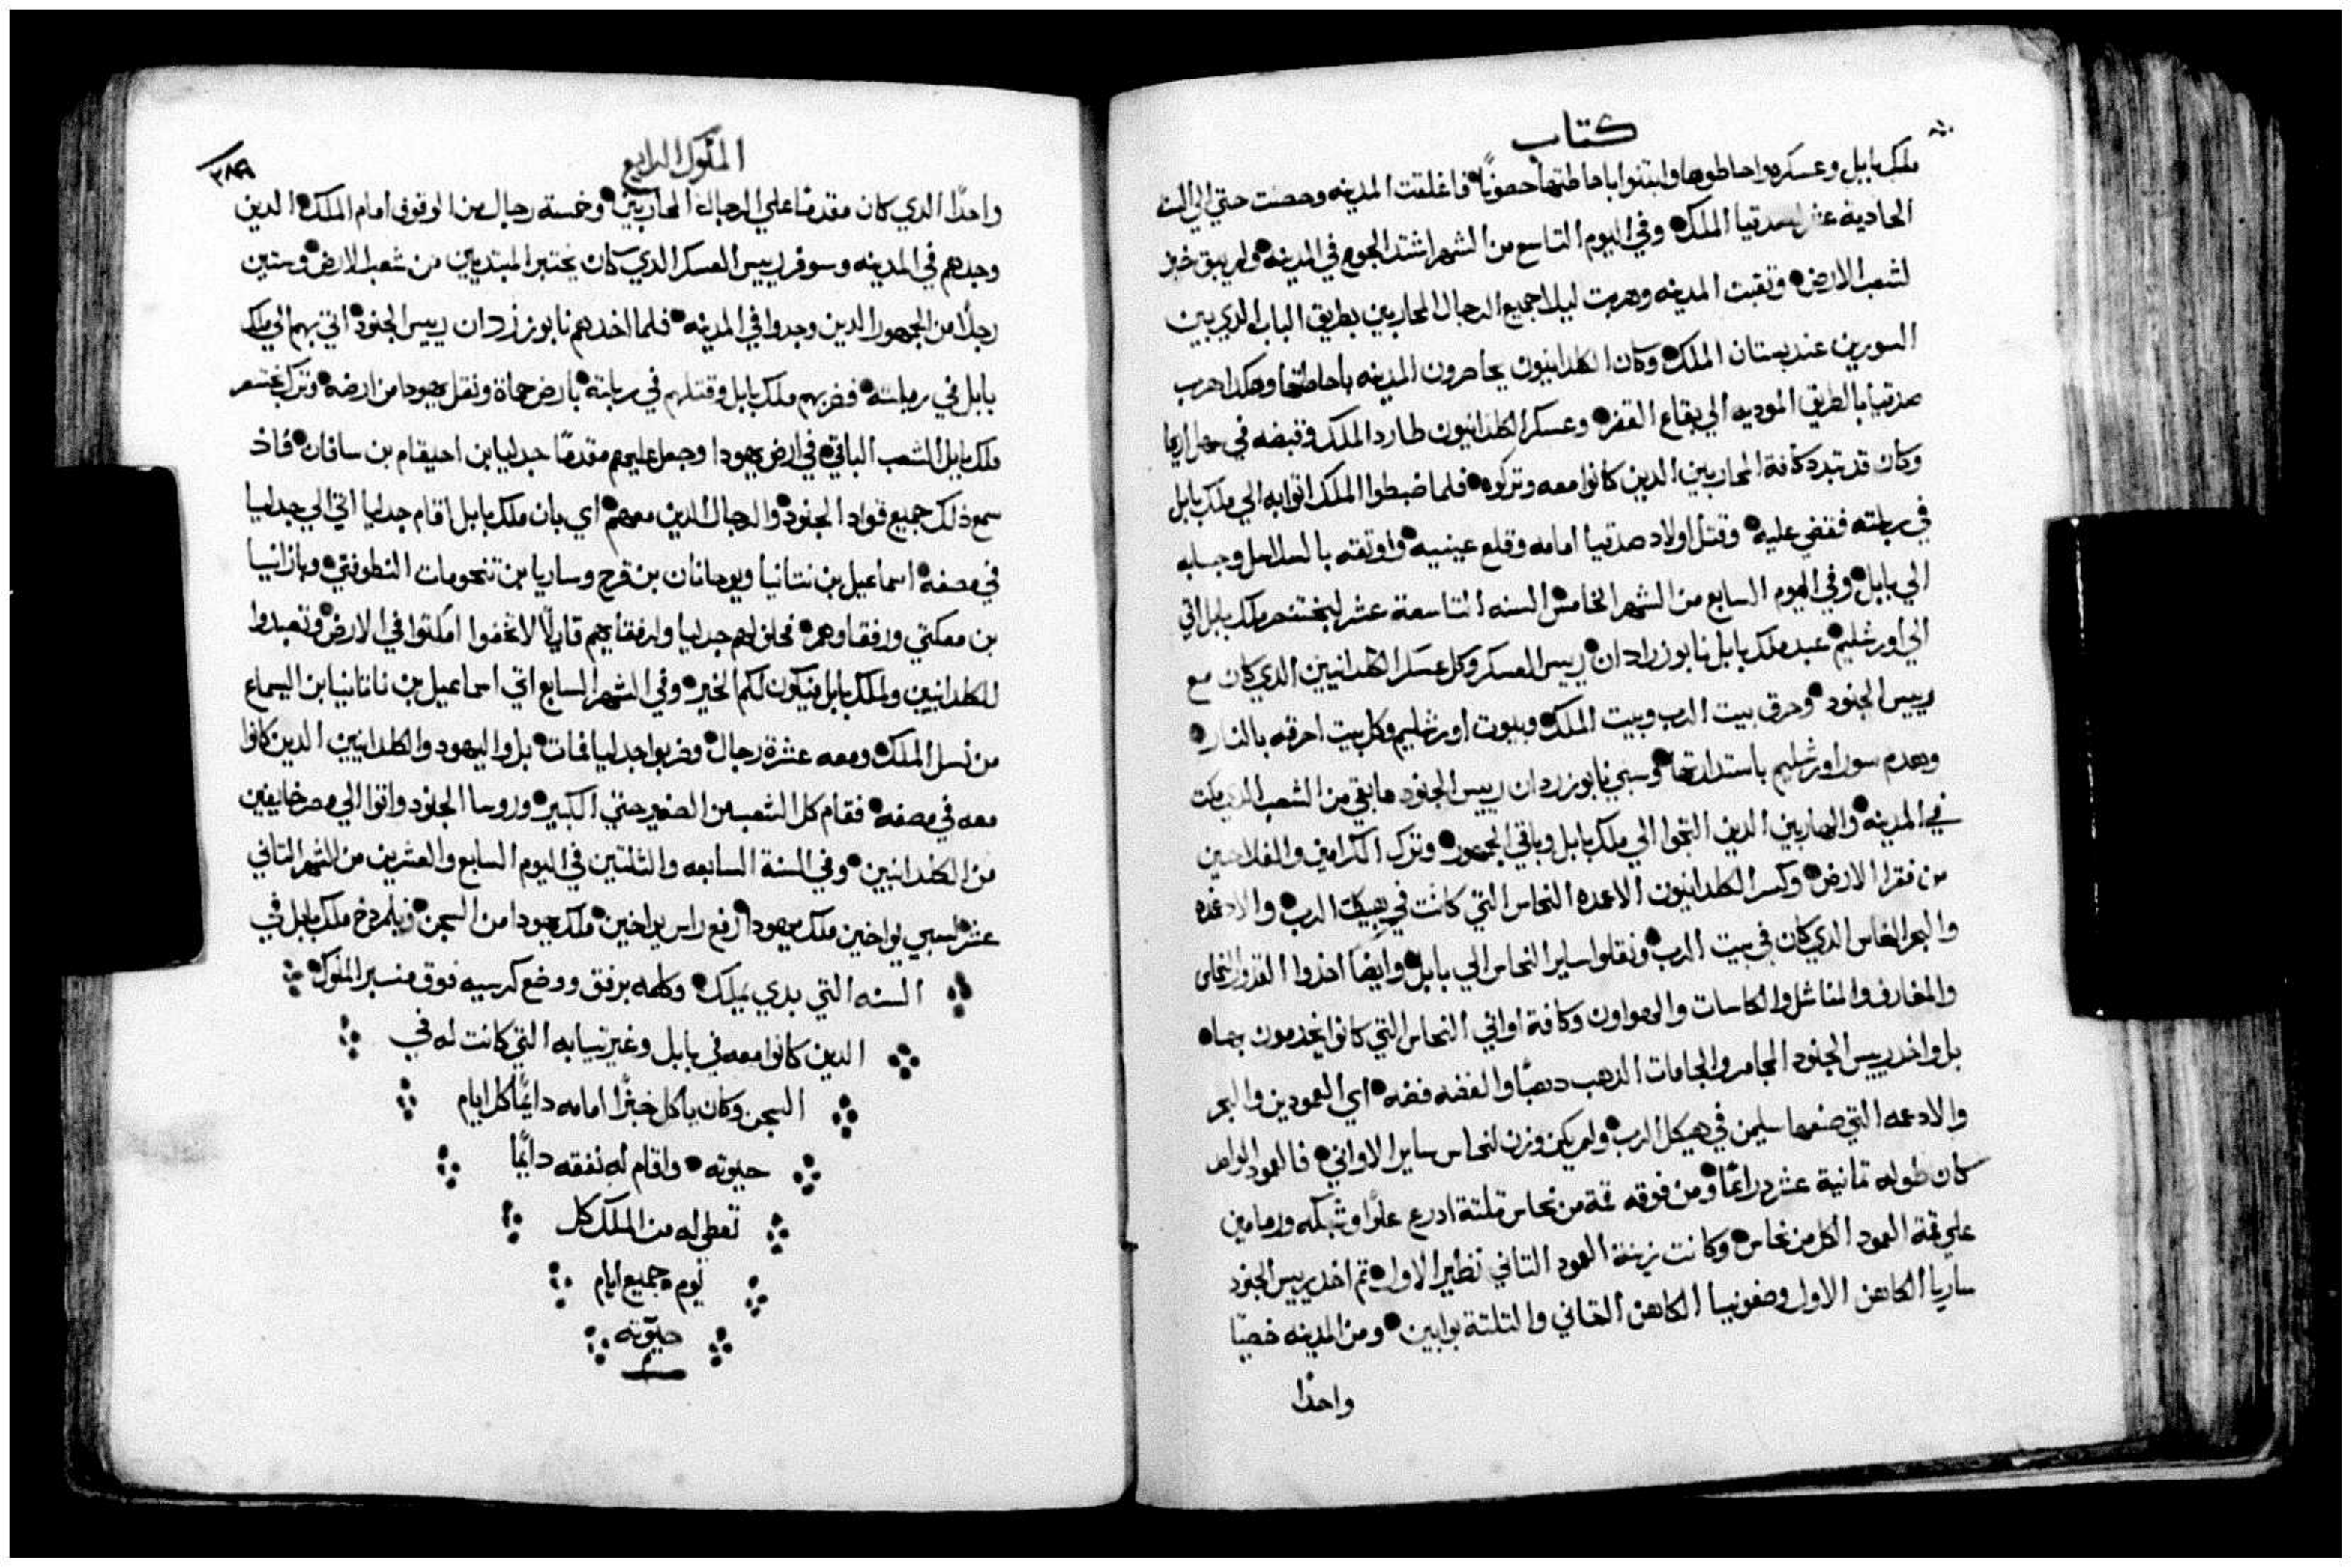 كتاب
ملك بابل وعسكره واحاطوها وابتنوا باحاطتها حصونًا فاغلقت المدينه وحصنت حتي الي السنه
الحادية عشر لصدقيا الملك وفي اليوم التاسع من الشهر اشتد الجوع في المدينه ولم يبق خبز
لشعب الارض وتقبت المدينه وهربت ليلا جميع الرجال المحاربين بطريق الباب الدي بين
السورين عند بستان الملك وكان الكلدانيون يحاصرون المدينه باحاطتها وهكدا هرب
صدقيا بالطريق الموديه الي بقاع القفر وعسكر الكلدانيون طارد الملك وقبضه في سهل اريحا
وكان قد تبدد كافة المحاربين الدين كانوا معه وتركوه فلما ضبطوا الملك اتوا به الي ملك بابل
في ربلته فقضي عليه وقتل اولاد صدقيا امامه وقلع عينيه واوتقه بالسلاسل وجابه
الي بابل وفي اليوم السابع من الشهر الخامس السنه التاسعة عشر لبختنصر ملك بابل اتي
الي اورشليم عبد ملك بابل نابوزرادان رييس العسكر وكل عسكر الكلدانيين الدي كان مع
رييس الجنود وحرق بيت الرب وبيت الملك وبيوت اورشليم وكل بيت احرقه بالنار
وهدم سور اورشليم باستدارتها وسبي نابوزردان رييس الجنود ما بقي من الشعب
في المدينه والهاربين الدين التجوا الي ملك بابل وباقي الجمهور وترك الكرامين والفلاحين
من فقرا الارض وكسر الكلدانيون الاعمده النحاس التي كانت في هيكل الرب والادعمه
والبحر النحاس الدي كان في بيت الرب ونقلوا ساير النحاس الي بابل وايضًا اخدوا القدور النحاس
والمغارف والمناشل والكاسات والهواون وكافة اواني النحاس التي كانوا يخدمون بها
بل واخد رييس الجنود المجامر والجامات الدهب دهبًا والفضه فضه اي العمودين والبحر
والادعمه التي صنعها سليمن في هيكل الرب ولم يكن وزن لنحاس ساير الاواني فالعمود الواحد
كان طوله تمانية عشر دراعًا ومن فوقه قمة من نحاس تلتة ادرع علوًا وشبكه ورمامين
علي قمة العمود الكل من نحاس وكانت زينة العمود التاني نظير الاول تم اخد رييس الجنود
ساريا الكاهن الاول وصفونيا الكاهن التاني والتلتة بوابين ومن المدينه خصيًا
واحدًا
الملوك الرابع
٣٨٩
واحدًا الدي كان مقدمًا علي الرجال المحاربين وخمسة رجال من الوقوف امام الملك الدين
وجدهم في المدينه وسوفر رييس العسكر الدي كان يختبر المبتديين من شعب الارض وستين
رجلًا من الجمهور الدين وجدوا في المدينه فلما اخدهم نابوزردان رييس الجنود اتي بهم الي ملك
بابل في ربلته فضربهم ملك بابل وقتلهم في ربلتة بارض حماة ونقل يهودا من ارضه وترك بختنصر
ملك بابل الشعب الباقي في ارض يهودا وجعل عليهم مقدمًا جدليا بن احيقام بن سافان فاد
سمع دلك جميع قواد الجنود والرجال الدين معهم اي بان ملك بابل اقام جدليا اتي الي جدليا
في مصفه اسماعيل بن نتانيا ويوحانان بن قرح وساريا بن تنحومات النطوفتي ويازانيا
بن معكتي ورفقاوهم فحلف لهم جدليا ولرفقايهم قايلًا لا تخافوا امكتوا في الارض وتعبدوا
للكلدانيين ولملك بابل فيكون لكم الخير وفي الشهر السابع اتي اسماعيل بن ناتانيا بن اليسماع
من نسل الملك ومعه عشرة رجال وضربوا جدليا فمات بل واليهود والكلدانيين الدين كانوا
معه في مصفه فقام كل الشعب من الصغير حتي الكبير وروسا الجنود واتوا الي مصر خايفين
من الكلدانيين وفي السنة السابعه والتلتين في اليوم السابع والعشرين من الشهر التاني
عشر لسبي يواخين ملك يهودا رفع راس يواخين ملك يهودا من السجن ملك بابل في
السنه التي بدي يملك وكلمه برفق ووضع كرسيه فوق منبر الملوك
الدين كانوا معه في بابل وغير تيابه التي كانت له في
السجن وكان ياكل خبزًا امامه دايمًا كل ايام
حيوته واقام له نفقه دايمًا
تعطي له من الملك كل
يوم جميع ايام
حيوته